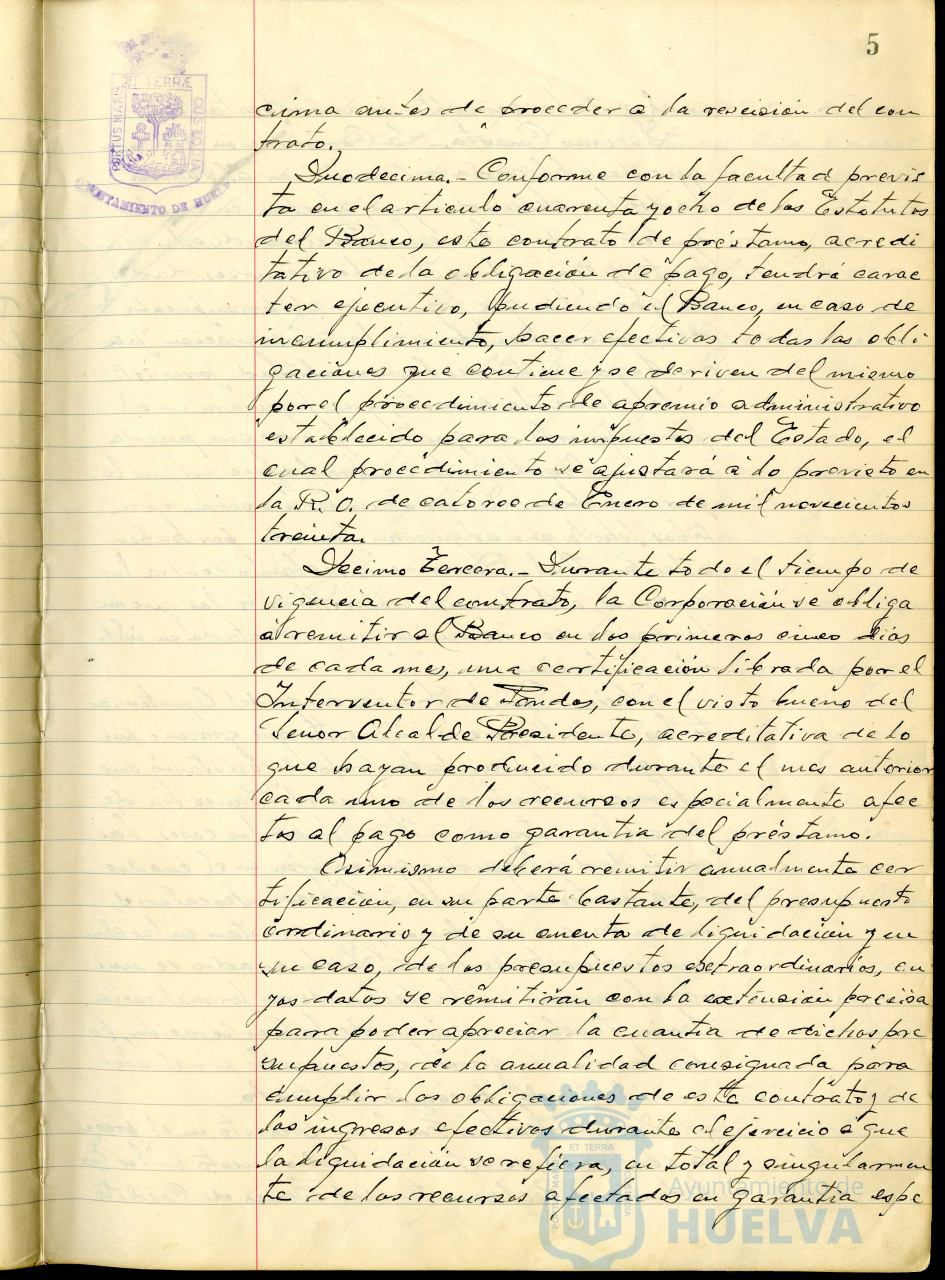 5
PORTUS MARIS
ET TERRÆ
CUSTODIA
AYUNTAMIENTO DE HUELVA
cima antes de proceder á la rescisión del con
trato.
Duodecima.- Conforme con la facultad previs
ta en el articulo cuarenta y ocho de los Estatutos
del Banco, este contrato de préstamo, acredi
tativo de la obligación de pago, tendrá carac
ter ejecutivo, pudiendo el Banco, en caso de
incumplimiento, hacer efectivas todas las obli
gaciones que contiene y se deriven del mismo
por el procedimiento de apremio administrativo
establecido para los impuestos del Estado, el
cual procedimiento se ajustará á lo previsto en
la R. O. de catorce de Enero de mil novecientos
treinta.
Decimo Tercera.- Durante todo el tiempo de
vigencia del contrato, la Corporación se obliga
á remitir al Banco en los primeros cinco dias
de cada mes, una certificación librada por el
Interventor de Fondos, con el visto bueno del
Senor Alcalde Presidente, acreditativa de lo
que hayan producido durante el mes anterior
cada uno de los recursos especialmente afec
tos al pago como garantia del préstamo.
Asimismo deberá remitir anualmente cer
tificación, en su parte bastante, del presupuesto
ordinario y de su cuenta de liquidación y en
su caso, de los presupuestos extraordinarios, cu
yos datos se remitirán con la extensión precisa
para poder apreciar la cuantia de dichos pre
supuestos, de la anualidad consignada para
cumplir las obligaciones de este contrato y de
los ingresos efectivos durante el ejercicio á que
la liquidación se refiera, en total y singularmen
te de los recursos afectados en garantia espe
ET TERRÆ
Ayuntamiento de
HUELVA